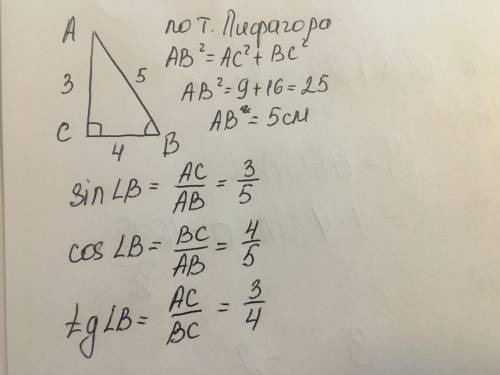 A
3
5
C
4
B
по т. Пифагора
AB² = AC² + BC²
AB² = 9 + 16 = 25
AB = 5 см
sin ∠B = AC/AB = 3/5
cos ∠B = BC/AB = 4/5
tg ∠B = AC/BC = 3/4